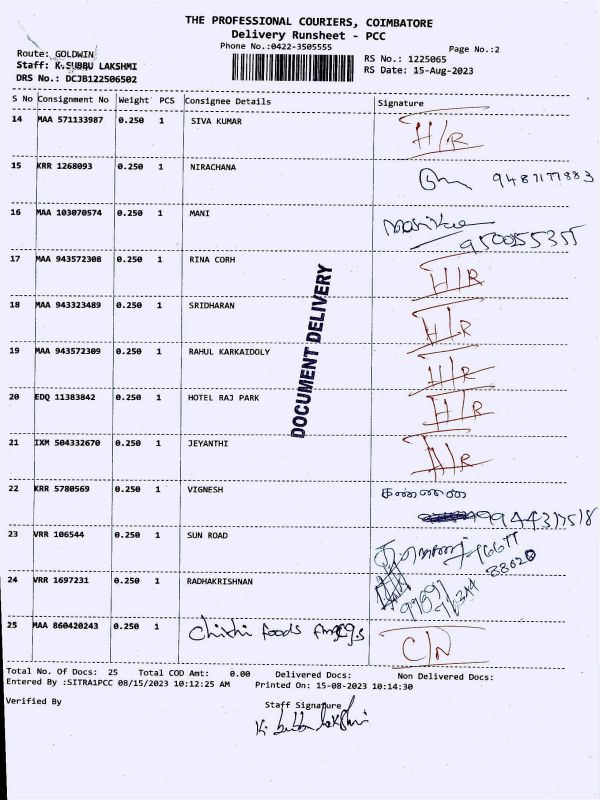 THE PROFESSIONAL COURIERS, COIMBATORE
Delivery Runsheet - PCC
Phone No.:0422-3505555
Page No.:2
Route: GOLDWIN
Staff: K.SUBBU LAKSHMI
DRS No.: DCJB122506502
RS No.: 1225065
RS Date: 15-Aug-2023
S No Consignment No Weight PCS Consignee Details Signature
14 MAA 571133987 0.250 1 SIVA KUMAR H/R
15 KRR 1268093 0.250 1 NIRACHANA
16 MAA 103070574 0.250 1 MANI
17 MAA 943572308 0.250 1 RINA CORH H/R
18 MAA 943323489 0.250 1 SRIDHARAN H/R
19 MAA 943572309 0.250 1 RAHUL KARKAIDOLY H/R
20 EDQ 11383842 0.250 1 HOTEL RAJ PARK H/R
21 IXM 504332670 0.250 1 JEYANTHI A/R
22 KRR 5780569 0.250 1 VIGNESH
23 VRR 106544 0.250 1 SUN ROAD
24 VRR 1697231 0.250 1 RADHAKRISHNAN
25 MAA 860420243 0.250 1 foods C/N
DOCUMENT DELIVERY
Total No. Of Docs: 25 Total COD Amt: 0.00 Delivered Docs: Non Delivered Docs:
Entered By :SITRA1PCC 08/15/2023 10:12:25 AM Printed On: 15-08-2023 10:14:30
Verified By
Staff Signature
K. Subbu lakshmi